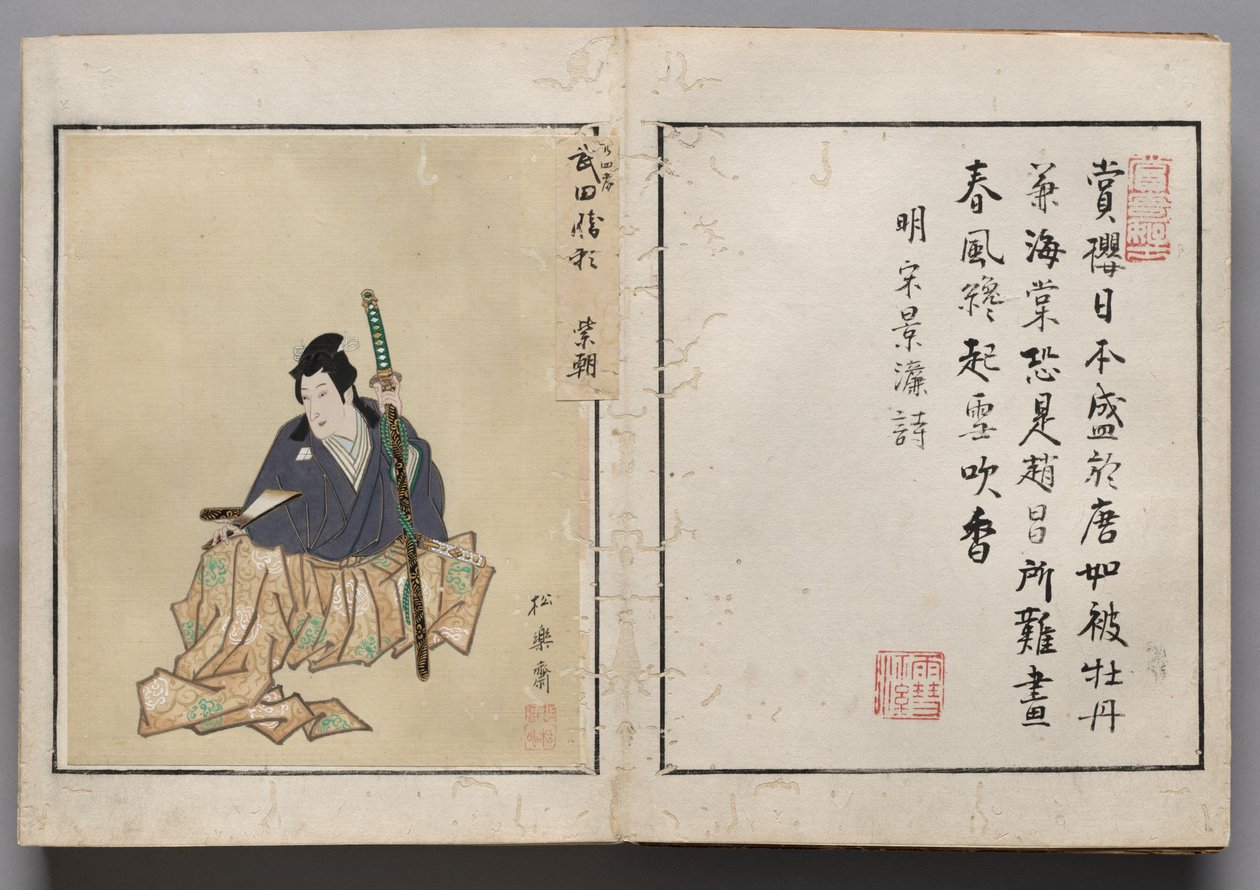 賞櫻日本盛於唐如被牡丹
兼海棠恐是趙昌所難畫
春風纔起雪吹香
明宋景濂詩
廿四孝
武田勝頼 紫朝
松樂齋